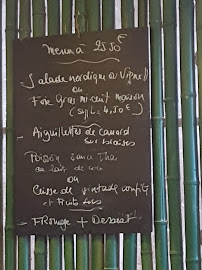 menu à 25.50€
Salade nordique ou
ou
Foie Gras mi-cuit maison
(suppl = 4,50€)
Aiguillettes de canard
Poisson sauce Thaï
au lait de coco
ou
Cuisse de pintade confite
et
- Fromage + Dessert